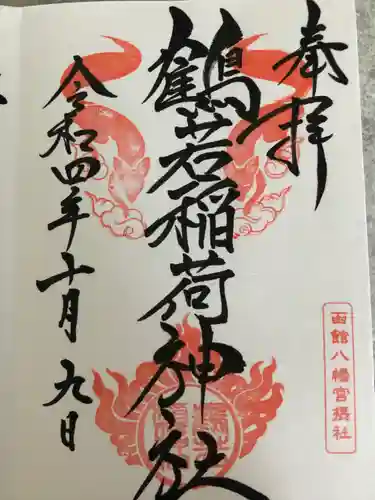 奉拝
鶴若稲荷神社
令和四年十月九日
函館八幡宮摂社